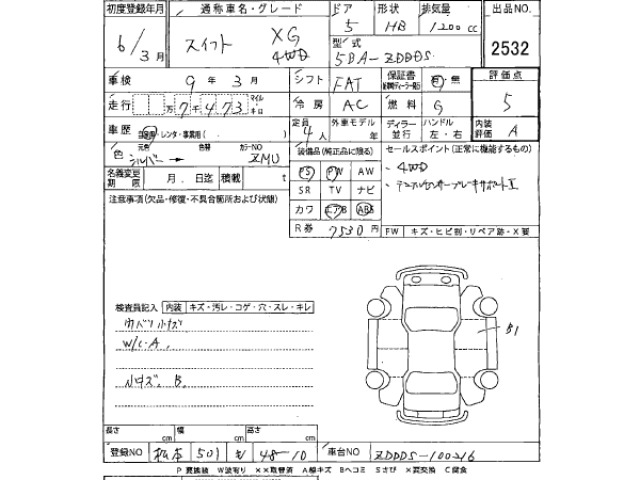 初度登録年月 通称車名・グレード ドア 形状 排気量 出品NO.
6/3月 スイフト XG 4WD 5 HB 1200cc 2532
型式 5BA-ZDDDS
車検 9年3月 シフト FAT 保証書 有・無 評価点
走行 万7千473 マイル キロ 冷房 AC 燃料 G 5
車歴 自家用・レンタ・事業用( ) 定員 4人 外車モデル 年 ディーラー 並行 ハンドル 左・右 内装評価 A
色 元色 シルバー → 色替 カラーNO ZMU 装備品(純正品に限る) セールスポイント(正常に機能するもの)
名義変更期限 月 日迄 積載 t PS PW AW ・4WD
注意事項(欠品・修復・不具合個所および状態) SR TV ナビ ・デュアルセンサーブレーキサポートⅡ
カワ エアB ABS
R券 7530円 FW キズ・ヒビ割・リペア跡・X要
検査員記入 内装 キズ・汚レ・コゲ・穴・スレ・キレ
内バリ小キズ B1
W/C・A.
小キズ. B.
長さ cm 幅 cm 高さ cm
登録NO 松本 501 も 48-10 車台NO ZDDDS-100216
P要塗装 W波有り XX取替済 A線キズ Bヘコミ Sさび X要交換 C腐食